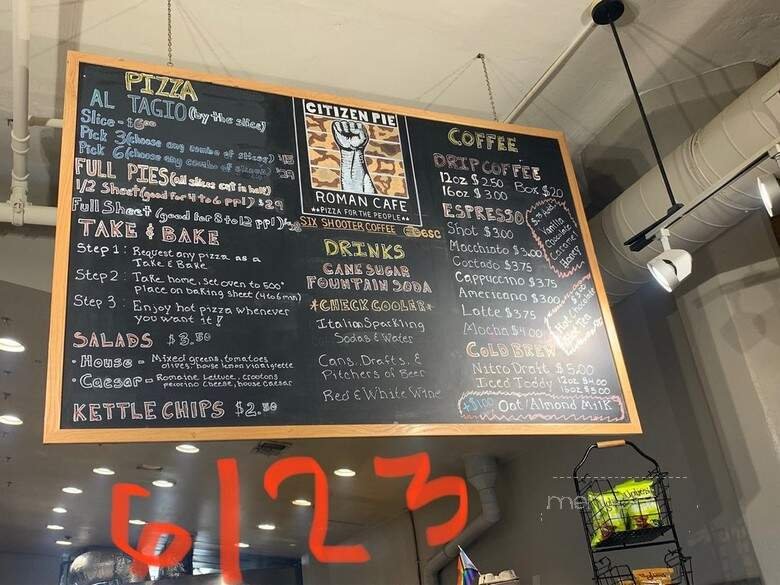 PIZZA
AL TAGIO (by the slice)
Slice -
Pick 3 (choose any combo of slices)
Pick 6 (choose any combo of slices)
FULL PIES (all slices cut in half)
1/2 Sheet (good for 4 to 6 ppl)
Full Sheet (good for 8 to 12 ppl)
TAKE & BAKE
Step 1: Request any pizza as a
Take & Bake
Step 2: Take home, set oven to 500°
place on baking sheet (4 to 6 min)
Step 3: Enjoy hot pizza whenever
you want it!
SALADS $3.50
• House - Mixed greens, tomatoes
olives, house lemon vinaigrette
• Caesar - Romaine Lettuce, croutons
pecorino cheese, house caesar
KETTLE CHIPS $2.50
CITIZEN PIE
ROMAN CAFE
★★PIZZA FOR THE PEOPLE★★
SIX SHOOTER COFFEE
DRINKS
CANE SUGAR
FOUNTAIN SODA
*CHECK COOLER*
Italian Sparkling
Sodas & Water
Cans, Drafts, &
Pitchers of Beer
Red & White Wine
COFFEE
DRIP COFFEE
12oz $2.50 Box $20
16oz $3.00
ESPRESSO
Shot $3.00
Macchiato $3.00
Cortado $3.75
Cappuccino $3.75
Americano $3.00
Latte $3.75
Mocha $4.00
Vanilla
Chocolate
Caramel
Honey
Hot Chocolate
COLD BREW
Nitro Draft $5.00
Iced Toddy 12oz $4.00
16oz $5.00
+$1.00 Oat/Almond Milk
6123